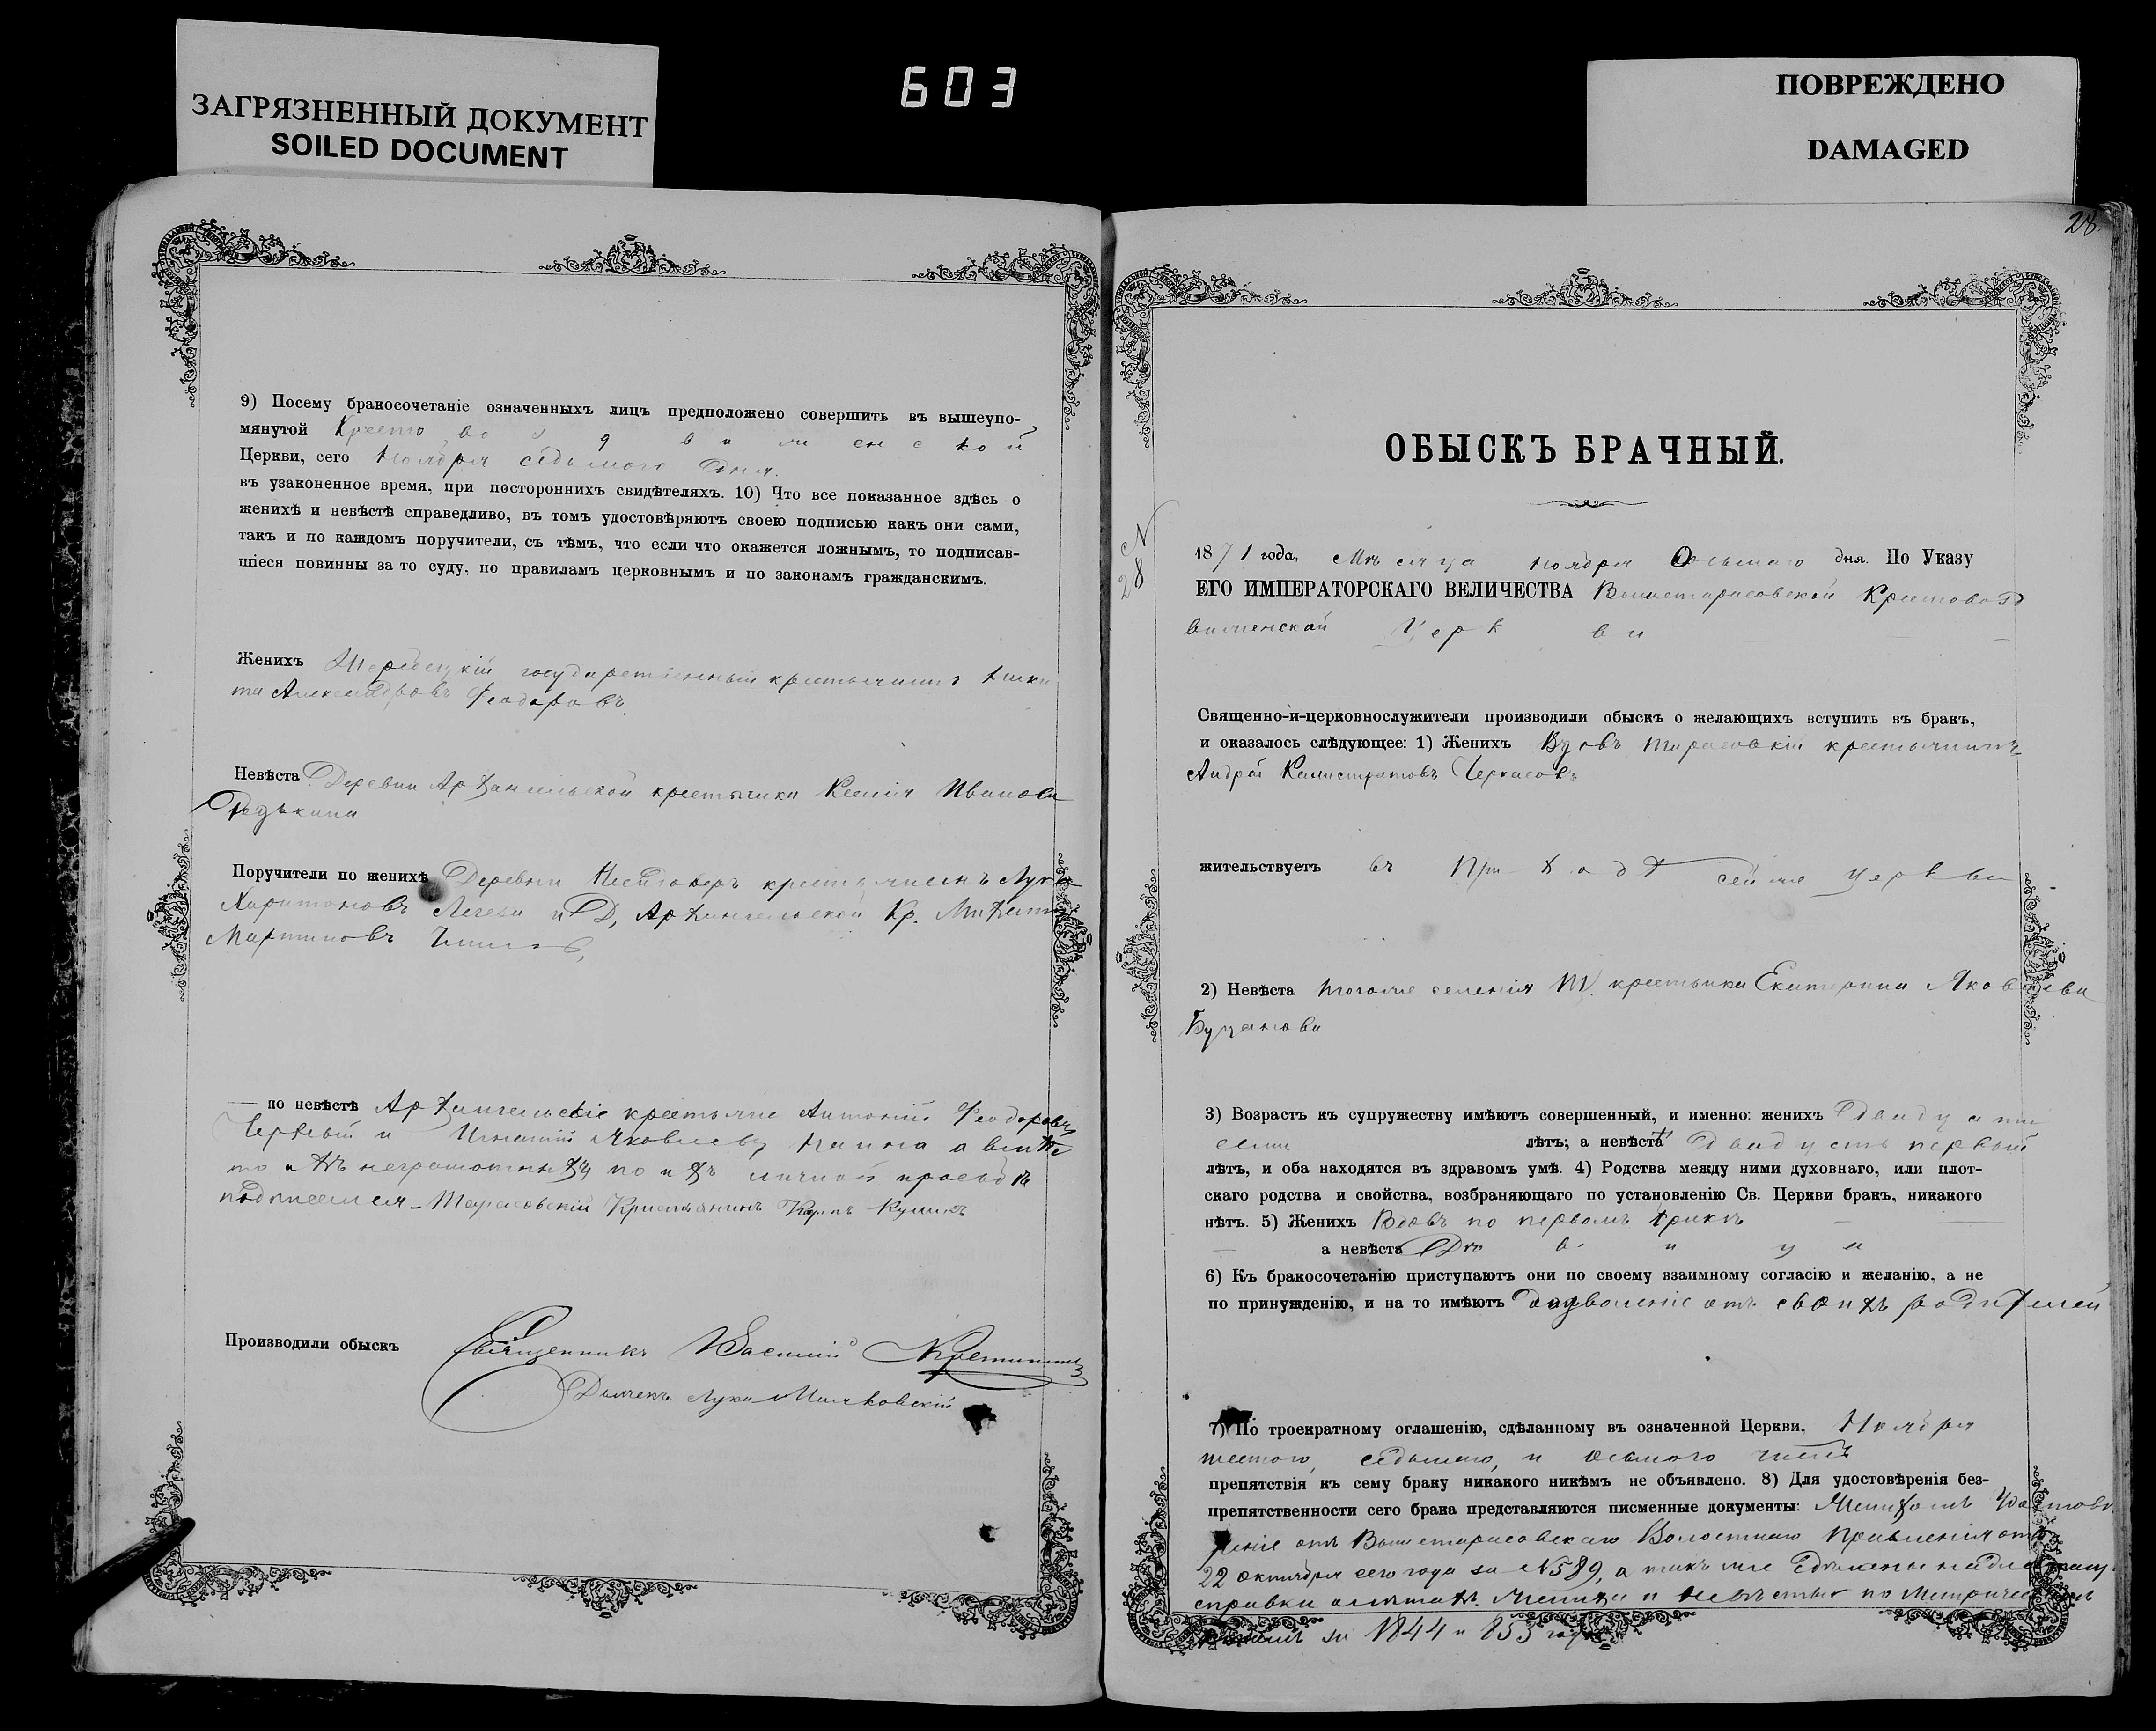 ЗАГРЯЗНЕННЫЙ ДОКУМЕНТ
SOILED DOCUMENT
603
ПОВРЕЖДЕНО
DAMAGED
9) Посему бракосочетаніе означенныхъ лицъ предположено совершить въ вышеупо-
мянутой Кресто воздвиженской
Церкви, сего Ноября седьмого дня.
въ узаконенное время, при постороннихъ свидѣтеляхъ. 10) Что все показанное здѣсь о
женихѣ и невѣстѣ справедливо, въ томъ удостовѣряютъ своею подписью какъ они сами,
такъ и по каждомъ поручители, съ тѣмъ, что если что окажется ложнымъ, то подписав-
шіеся повинны за то суду, по правиламъ церковнымъ и по законамъ гражданскимъ.
Женихъ государственный крестьянинъ Ники
та Александровъ Феодоровъ
Невѣста Деревни Архангельской крестьянка Ксенія Иванова
Редькина
Поручители по женихѣ Деревни крестьянинъ Лука
Харитоновъ и Д, Архангельской Кр.
Мартиновъ
по невѣстѣ Архангельскіе крестьяне Антоній Феодоровъ
и Игнатій Яковлевъ а вмѣс
то ихъ неграмотныхъ по ихъ личной просьбѣ
подписался - Тарасовскій Кристьянинъ Карпъ Куликъ
Производили обыскъ Священникъ Василій
Дьячекъ Лука
28.
ОБЫСКЪ БРАЧНЫЙ.
N
28
1871 года, Мѣсяца ноября Осьмаго дня. По Указу
ЕГО ИМПЕРАТОРСКАГО ВЕЛИЧЕСТВА Вышетарасовской Крестовозд
виженской Церкви
Священно-и-церковнослужители производили обыскъ о желающихъ вступить въ бракъ,
и оказалось слѣдующее: 1) Женихъ тарасовскій крестьянинъ
Андрей Калистратовъ Черкасовъ
жительствуетъ въ Приходѣ сей же церкви
2) Невѣста тогоже селенія крестьянка Екатерина Яковлева
3) Возрастъ къ супружеству имѣютъ совершенный, и именно: женихъ двадцати
семи лѣтъ; а невѣста двадцать первый
лѣтъ, и оба находятся въ здравомъ умѣ. 4) Родства между ними духовнаго, или плот-
скаго родства и свойства, возбраняющаго по установленію Св. Церкви бракъ, никакого
нѣтъ. 5) Женихъ Вдовъ по первомъ бракѣ
а невѣста Дѣвица
6) Къ бракосочетанію приступаютъ они по своему взаимному согласію и желанію, а не
по принужденію, и на то имѣютъ дозволеніе отъ своихъ родителей
7) По троекратному оглашенію, сдѣланному въ означенной Церкви, Ноября
шестого, седьмаго, и осьмого чиселъ
препятствія къ сему браку никакого никѣмъ не объявлено. 8) Для удостовѣренія без-
препятственности сего брака представляются писменные документы: Женихомъ Удостовѣ
реніе отъ Вышетарасовскаго Волостнаго Правленія отъ
22 октября сего года за №589, а такъ же сдѣланы
справки о лѣтахъ Жениха и невѣсты по
за 1844 и 853 годы